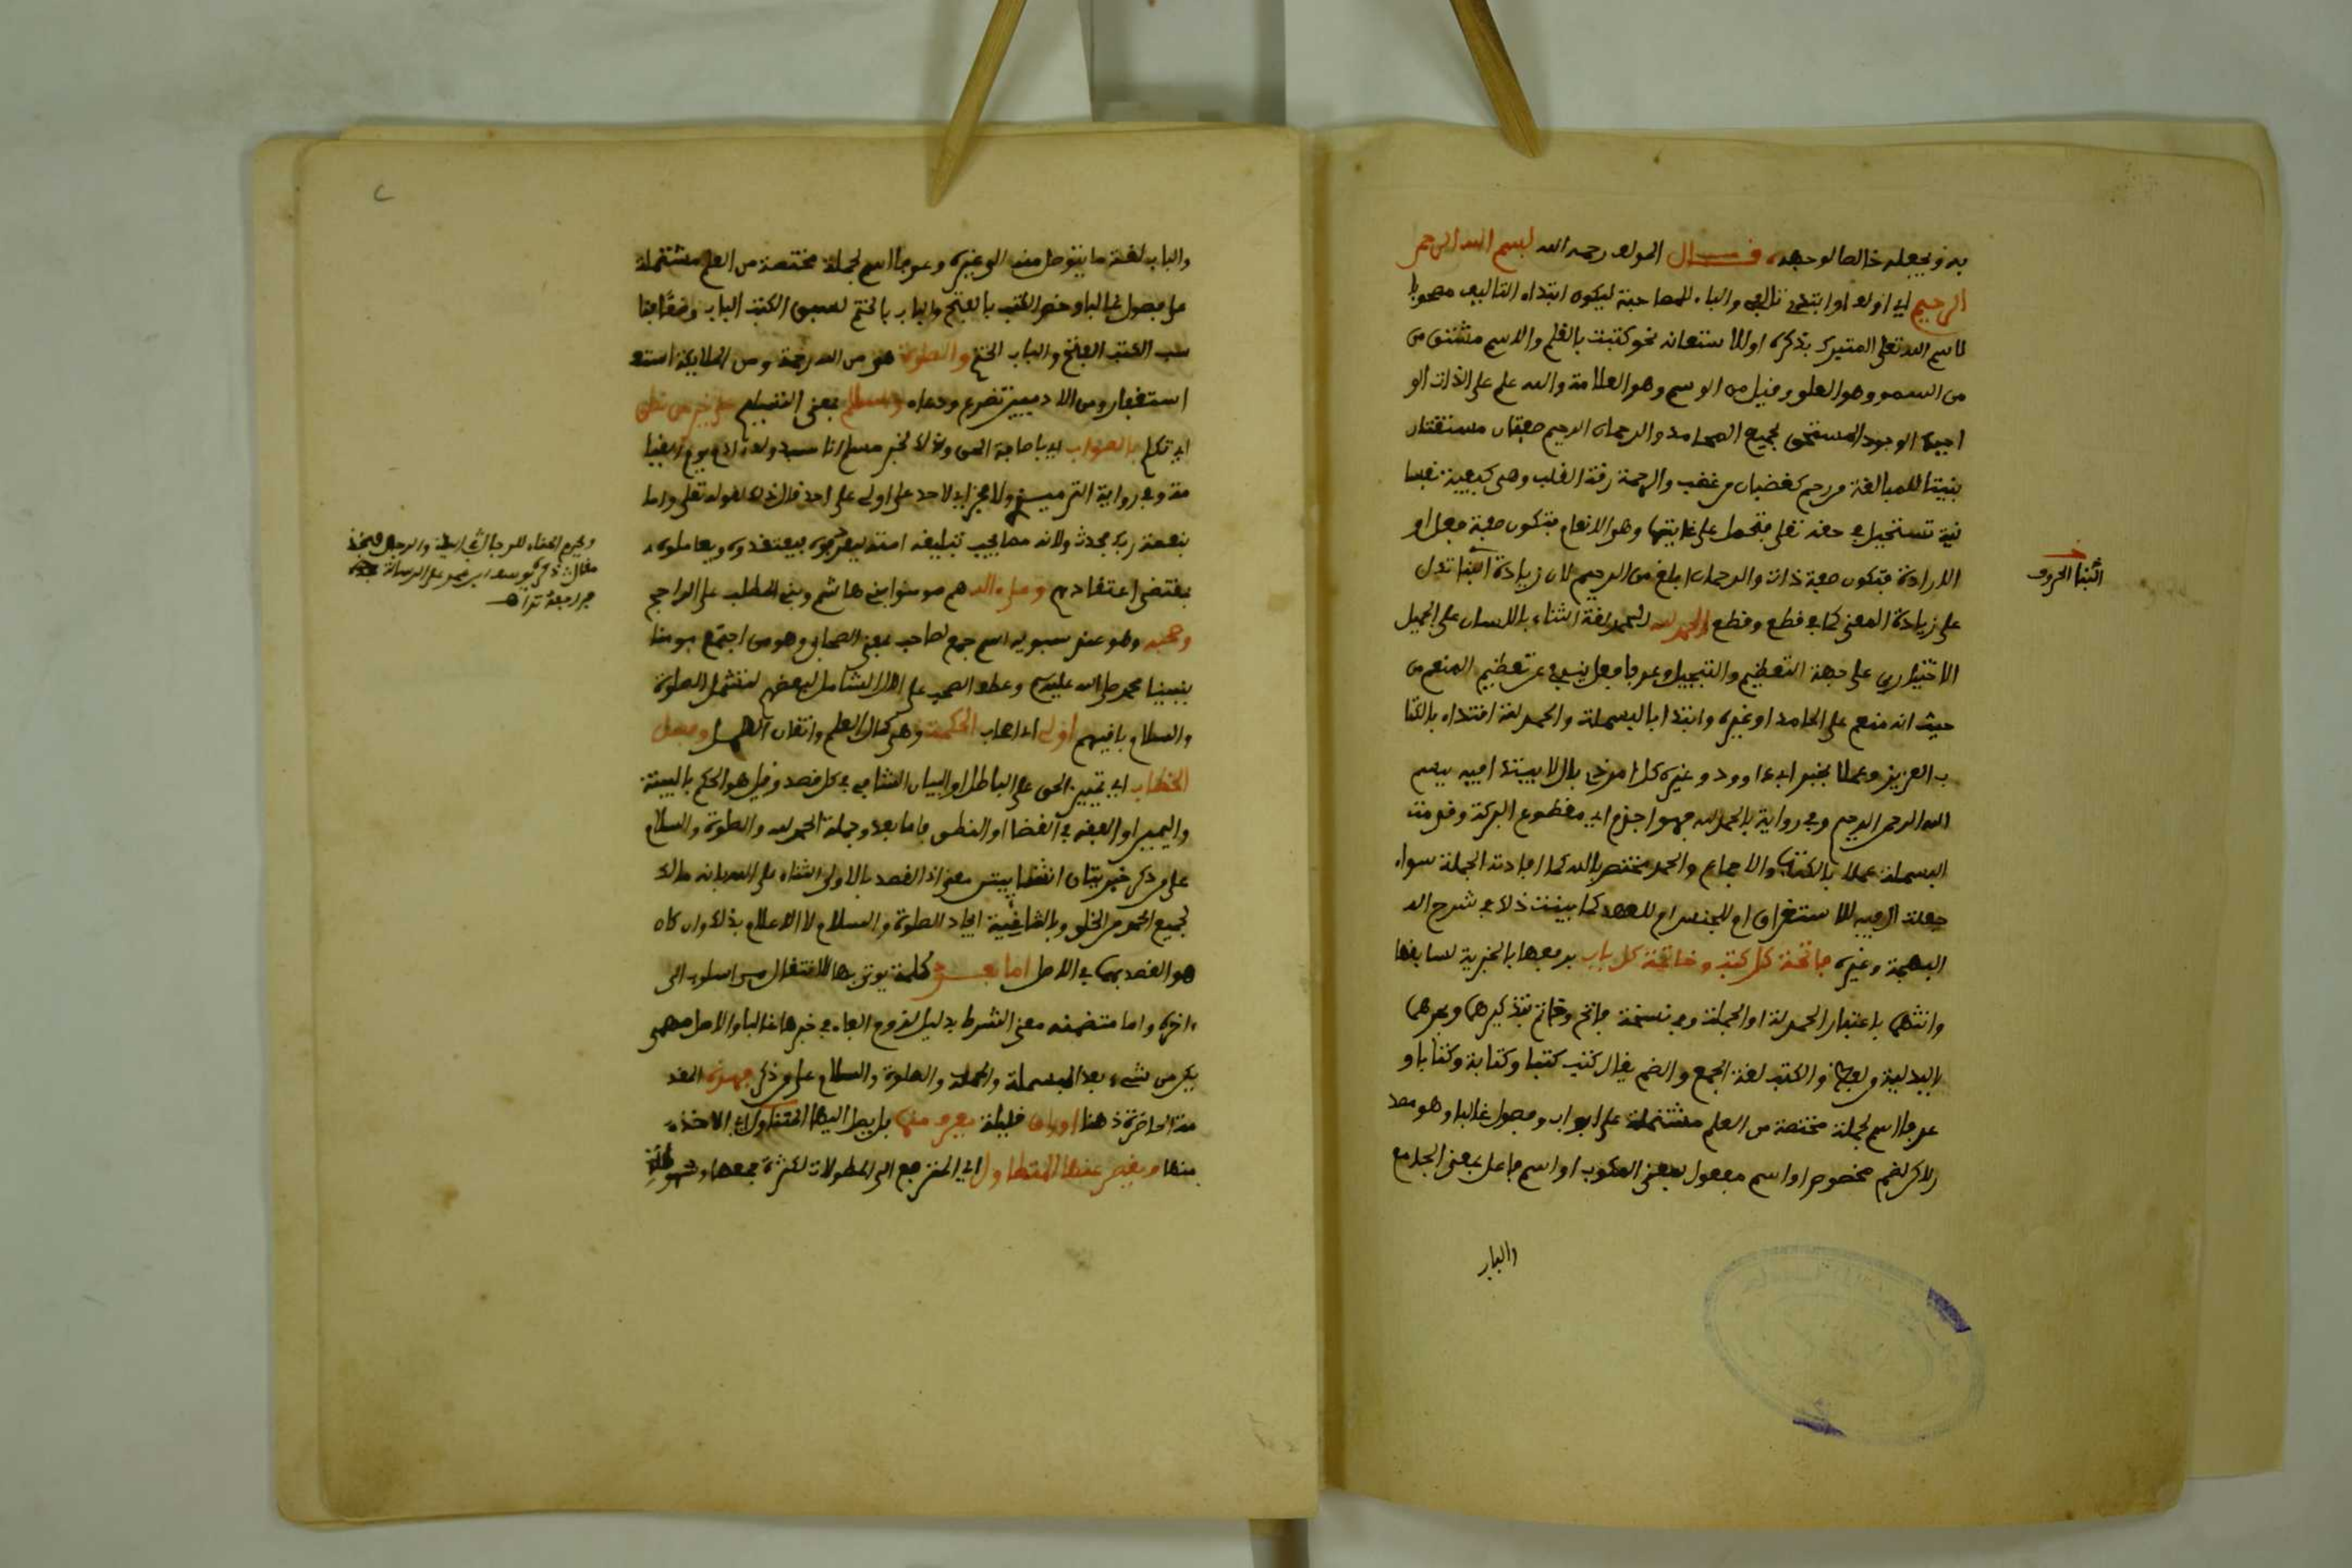 به ويجعله خالصا لوجهه قال المولف رحمه الله بسم الله الرحمن
الرحيم اي اولف او ابتدئ تاليفي والباء للمصاحبة ليكون ابتداء التاليف مصحوبا
باسم الله تعلى المتبرك بذكره او للاستعانه نحو كتبت بالقلم والاسم مشتق من
من السمو وهو العلو وقيل من الوسم وهو العلامة والله علم على الذات الو
اجبة الوجود المستحق لجميع المحامد والرحمان الرحيم صفتان مشتقتان
بنيتا للمبالغة من رحم كغضبان من غضب والرحمة رقة القلب وهي كيفية نفسا
نية تستحيل في حقه تعلى فتحمل على غايتها وهو الانعام فتكون صفة فعل او
الارادة فتكون صفة ذات والرحمان ابلغ من الرحيم لان زيادة البنا تدل
على زيادة المعنى كما في قطع وقطع الحمد لله الحمد لغة الثناء باللسان على الجميل
الاختياري على جهة التعظيم والتبجيل وعرفا فعل ينبئ عن تعظيم المنعم من
حيث انه منعم على الحامد او غيره وابتدا بالبسملة والحمدلة اقتداء بالكتا
ب العزيز وعملا بخبر ابي داوود وغيره كل امر ذي بال لا يبتدا فيه ببسم
الله الرحمن الرحيم وفي رواية بالحمد لله فهو اجذم اي مقطوع البركة وقدمت
البسملة عملا بالكتاب والاجماع والحمد مختص بالله كما افادته الجملة سواء
جعلت ال فيه للاستغراق ام للجنس ام للعهد كما بينت ذلك في شرح ال
البهجة وغيره فاتحة كل كتب وخاتمة كل باب برفعها بالخبرية لسابقها
وانثهما باعتبار الحمدلة او الجملة وفي نسخة فاتح وخاتم بتذكيرهما وبجرهما
بالبدلية والكتب لغة الجمع والضم يقال كتب كتبا وكتابة وكتابا و
عرفا اسم لجملة مختصة من العلم مشتملة على ابواب وفصول غالبا وهو مصد
ر لاكن لضم مخصوص او اسم مفعول بمعنى المكتوب او اسم فاعل بمعنى الجامع
والباب
البنا الحروف
والباب لغة ما يتوصل منه الى غيره وعرفا اسم لجملة مختصة من العلم مشتملة
على فصول غالبا وخص الكتب بالفتح والباب بالختم لسبق الكتب الباب
سب الكتب الفتح والباب الختم والصلوة هو من الله رحمة ومن الملايكة استغ
استغفار ومن الادميين تضرع ودعاء والسلام بمعنى التسليم على خير من نطق
اي تكلم بالصواب اي باصابة الحق وذلك لخبر مسلم انا سيد ولد ادم يوم القيا
مة وفي رواية الترميذي ولا فخر اي لاحد على اولى على احد قال ذلك لقوله تعلى واما
بنعمة ربك فحدث ولانه مما يجب تبليغه امته ليعرفوه فيعتقدوه ويعاملوه
بمقتضى اعتقادهم وعلى ءاله هم مومنوا بني هاشم وبني المطلب على الراجح
وصحبه وهو عند سيبويه اسم جمع لصاحب بمعنى الصحابي وهو من اجتمع مومنا
بنبينا محمد صلى الله عليه وسلم وعطف الصحب على الال الشامل لبعضهم لتشمل الصلوة
والسلام باقيهم اولي اي اصحاب الحكمة وهي كمال العلم واتقان العمل وفصل
الخطاب اي تمييز الحق على الباطل او البيان الشافي في كل قصد وقيل هو الحكم بالبينة
واليمين او الفقه في القضا او النطق باما بعد وجملة الحمد لله والصلوة والسلام
على من ذكر خبريتان لفظا معنى اذ القصد بالاولى الثناء على الله بانه مالك
لجميع الحمد من الخلق وبالثانية ايجاد الصلوة والسلام لا الاعلام بذلك وان كان
هو القصد بهما في الاصل اما بعد كلمة يوتى بها للانتقال من اسلوب الى
ءاخر واما متضمنه معنى الشرط بدليل لزوم الفاء في خبرها غالبا والاصل مهمى
يكن من شيء بعد البسملة والحمدلة والصلوة والسلام على من ذكر فهذه المقد
مة الحاضرة ذهنا اوراق قليلة يقرب منها بل يصل اليها المتناول اي الاخذ
منها ويقصر عنها المتطاول اي المترجع الى المطولات لكثرة جمعها وسهولة
ويحرم الغناء للرجال على النساء والرجال
ذكره يوسف ابن عمر على الرسالة